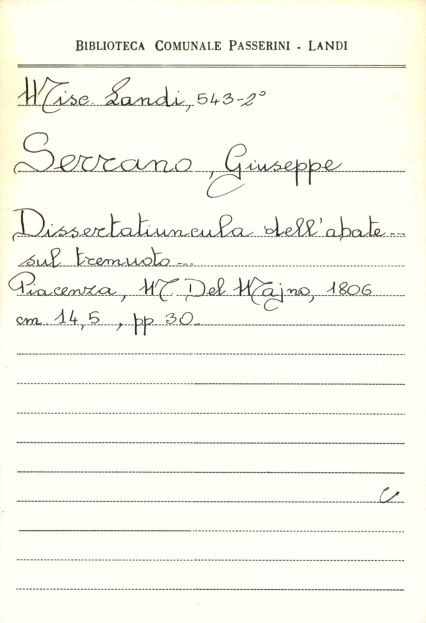 BIBLIOTECA COMUNALE PASSERINI - LANDI
Misc. Landi, 543-2°
Serrano, Giuseppe
Dissertatiuncula dell'abate...
sul tremuoto...
Piacenza, M. Del Majno, 1806
cm 14,5 , pp 30.